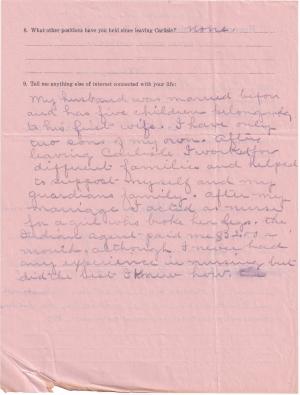 8. What other positions have you held since leaving Carlisle? none.
9. Tell me anything else of interest connected with your life:
My husband was married before
and has five children belonging
to his first wife. I have only
two sons of my own. After
leaving Carlisle I worked for
different families and helped
to support myself and my
guardians family. after my
marriage I acted as nurse
for a girl who broke her legs. the
Indian agent paid me $35.00 a
month. although I never had
any experience in nursing but
did the best I knew how.